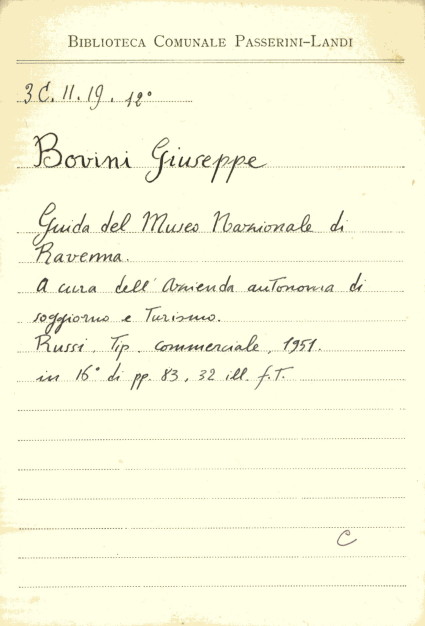 BIBLIOTECA COMUNALE PASSERINI-LANDI
3C. II. 19. 12°
Bovini Giuseppe
Guida del Museo Nazionale di
Ravenna.
A cura dell'Azienda autonoma di
soggiorno e Turismo.
Russi, Tip. commerciale, 1951.
in 16° di pp. 83, 32 ill. f.T.
C